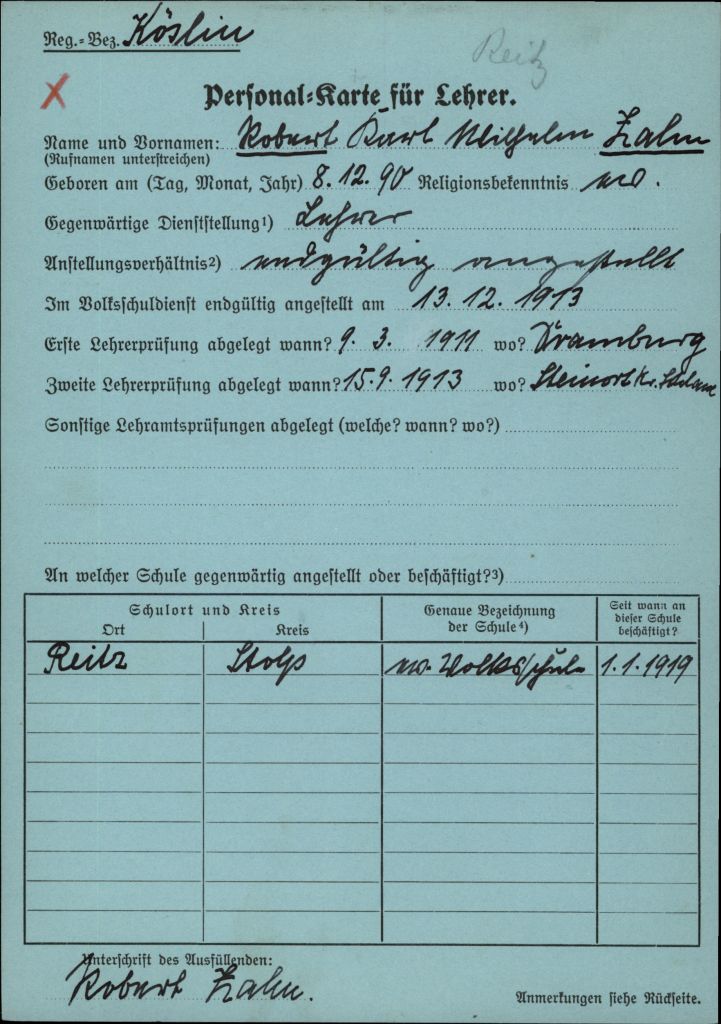 Reg.=Bez. Köslin
Reitz
Personal=Karte für Lehrer.
Name und Vornamen: Robert Karl Wilhelm Zahn
(Rufnamen unterstreichen)
Geboren am (Tag, Monat, Jahr) 8.12.90 Religionsbekenntnis ev.
Gegenwärtige Dienststellung¹) Lehrer
Anstellungsverhältnis²) endgültig angestellt
Im Volksschuldienst endgültig angestellt am 13. 12. 1913
Erste Lehrerprüfung abgelegt wann? 9. 3. 1911 wo? Dramburg
Zweite Lehrerprüfung abgelegt wann? 15.9.1913 wo? Steinort Kr. Schlawe
Sonstige Lehramtsprüfungen abgelegt (welche? wann? wo?)
An welcher Schule gegenwärtig angestellt oder beschäftigt?³)
Schulort und Kreis Genaue Bezeichnung der Schule⁴) Seit wann an dieser Schule beschäftigt?
Ort Kreis
Reitz Stolp ev. Volksschule 1.1.1919
Unterschrift des Ausfüllenden:
Robert Zahn.
Anmerkungen siehe Rückseite.